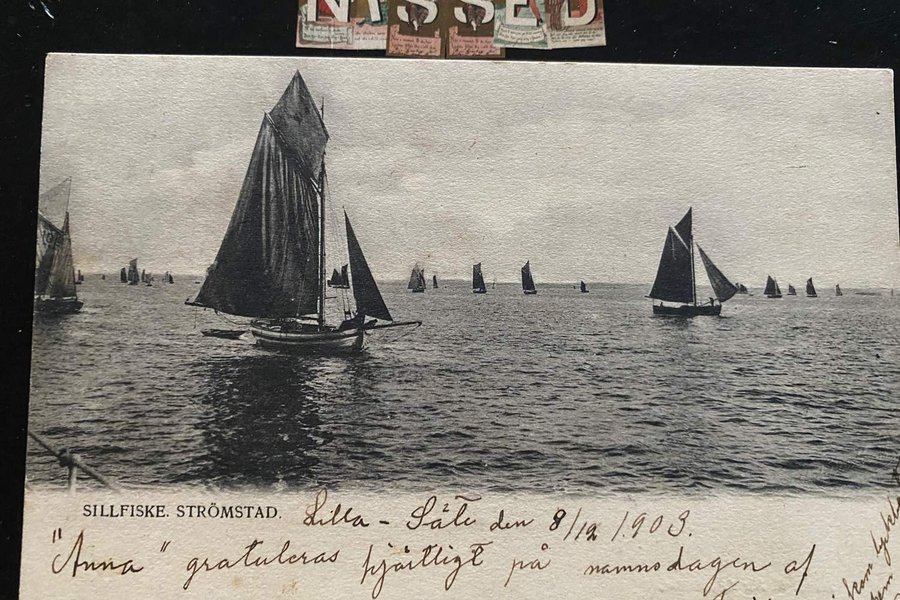 NISSED
SILLFISKE. STRÖMSTAD.
Lilla - Såte den 8/12 1903.
"Anna" gratuleras hjärtligt på namnsdagen af